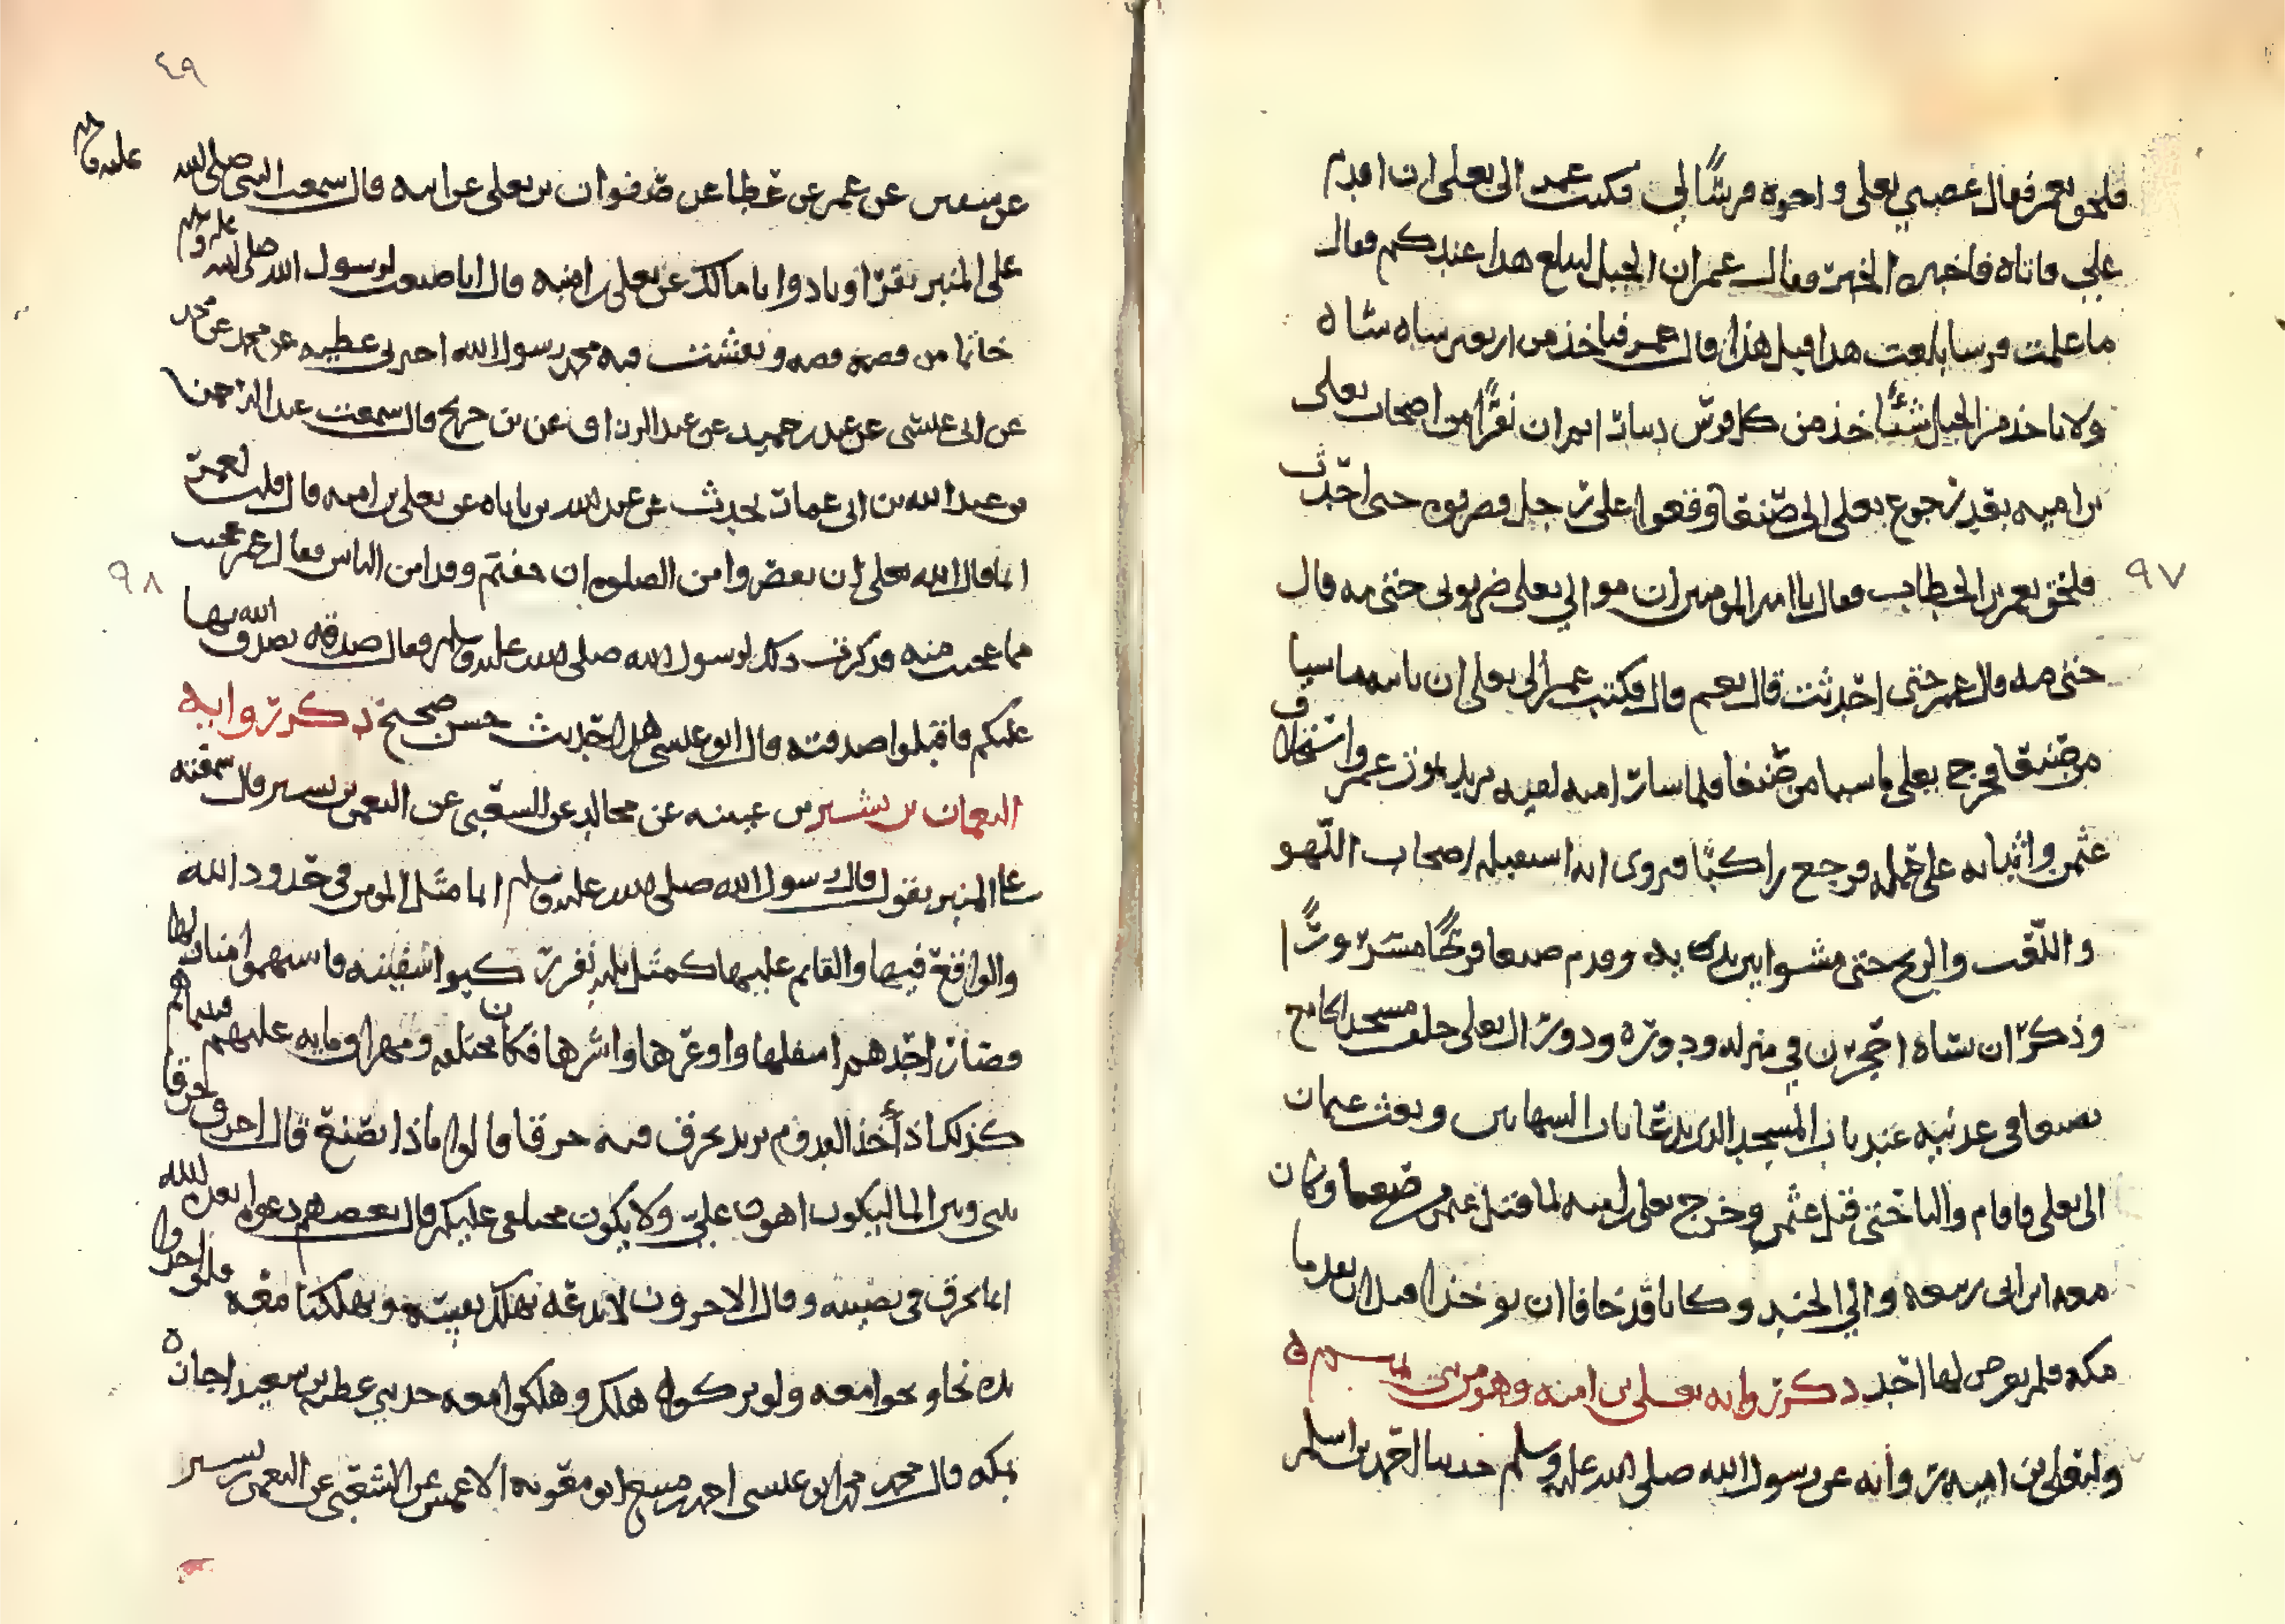 فلحق بعمر فقال غصبني يعلى واخوه فرسًا لي فكتب عمر الى يعلى ان اقدم
علي فاتاه فاخبره الخبر وقال عمر ان الخيل لتبلغ هذا عندكم فقال
ما علمت فرسا بلغت هذا قبل هذا قال عمر فناخذ من اربعين شاه شاه
ولا ناخذ من الخيل شيئًا خذ من كل فرس دينارا ثم ان نفرًا من اصحاب يعلى
بن اميه بعد رجوع يعلى الى صنعا وقعوا على رجل فضربوه حتى احدث
فلحق بعمر بن الخطاب فقال يا امير المومنين ان موالي يعلى ضربوني حتى مه قال
٩٧
حتى مه قال عمر حتى احدثت قال نعم قال فكتب عمر الى يعلى ان ماشيا
من صنعا فخرج يعلى ماشيا من صنعا فلما سار لقيه بريد بموت عمر واستخلاف
عثمن واثباته على عمله فرجع راكبًا فروى انه استقبله اصحاب اللهو
واللعب والريح حتى مشوا بين يديه وقدم صنعا فرحًا مسرورًا
وذكر ان شاه احجرن في منزله ودوره ودور ال يعلى خلف مسجد الجامع
بصنعا في عدنيه عند باب المسجد الذي يدعا باب وبعث عثمان
الى يعلى فاقام واليا حتى قتل عثمن وخرج يعلى بن اميه لما قتل عثمن من صنعا وكان
معه ابن ابي ربيعه والي الجند وكانا قد خافا ان يوخذا بعد ما
مكه فلم يعرض لهما احد ذكر روايه يعلى بن اميه وهو من بني
وليعلى بن اميه روايه عن رسول الله صلى الله عليه وسلم حدثنا احمد بن اسلم
٤٩
عن سفين عن عمر عن عطا عن صفوان بن يعلى عن ابيه قال سمعت النبي صلى الله
عليه وسلم
على المنبر يقرا ونادوا يا مالك عن يعلى بن اميه قال انا صنعت لرسول الله صلى الله عليه وسلم
خاتما من فضه فصه ونقشت فيه محمد رسول الله اخبرني عطيه عن محمد عن محمد
عن ابي عيسى عن عبد بن حميد عن عبد الرزاق عن بن جريج قال سمعت عبد الرحمن
بن عبد الله بن ابي عمار يحدث عن عبد الله بن باباه عن يعلى بن اميه قال قلت لعمر
انما قال الله تعلى ان تقصروا من الصلوه ان خفتم وقد امن الناس فقال عمر عجبت
٩٨
مما عجبت منه فذكرت ذلك لرسول الله صلى الله عليه وسلم فقال صدقه تصدق الله بها
عليكم فاقبلوا صدقته قال ابو عيسى هذا حديث حسن صحيح ذكر روايه
النعمان بن بشير بن عيينه عن مجالد عن الشعبي عن النعمن بن بشير قال سمعته
على المنبر يقول قال رسول الله صلى الله عليه وسلم انما مثل المومن في حدود الله
والواقع فيها والقايم عليها كمثل ثلثه نفر ركبوا سفينه فاستهموا منازلها
فصار احدهم اسفلها واوعرها واشرها فكان مختلفه ومهراق مايه عليهم فبيناهم
كذلك اذ أخذ القدوم يريد يخرق فيه خرقا قالوا ماذا تصنع قال اخرق خرقا
الما ليكون اهون علي ولا يكون مختلفي عليكم قال بعضهم دعوه ابعده الله
انما يخرق في نصيبه وقال الاخرون لا ندعه يهلك نفسه ويهلكنا معه فلو اخذوا
يده نجا ونجوا معه ولو تركوه هلك وهلكوا معه حدثني عطيه بن سعيد اجازه
بمكه قال محمد محمد ابو عيسى احمد بن منيع ابو معويه الاعمش عن الشعبي عن النعمن بن بشير